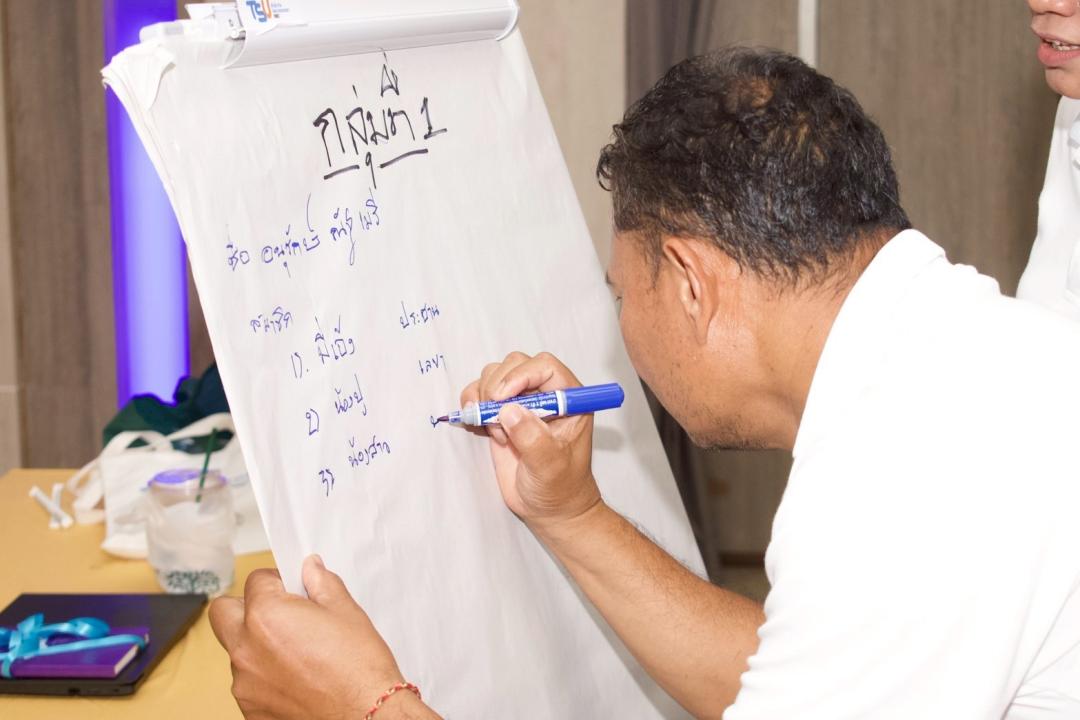 TSU
กลุ่มที่ 1
ชื่อ อนุรักษ์
สมาชิก
1). พี่เอ๋ง ประธาน
2) น้องปู เลขา
3) น้องสาว